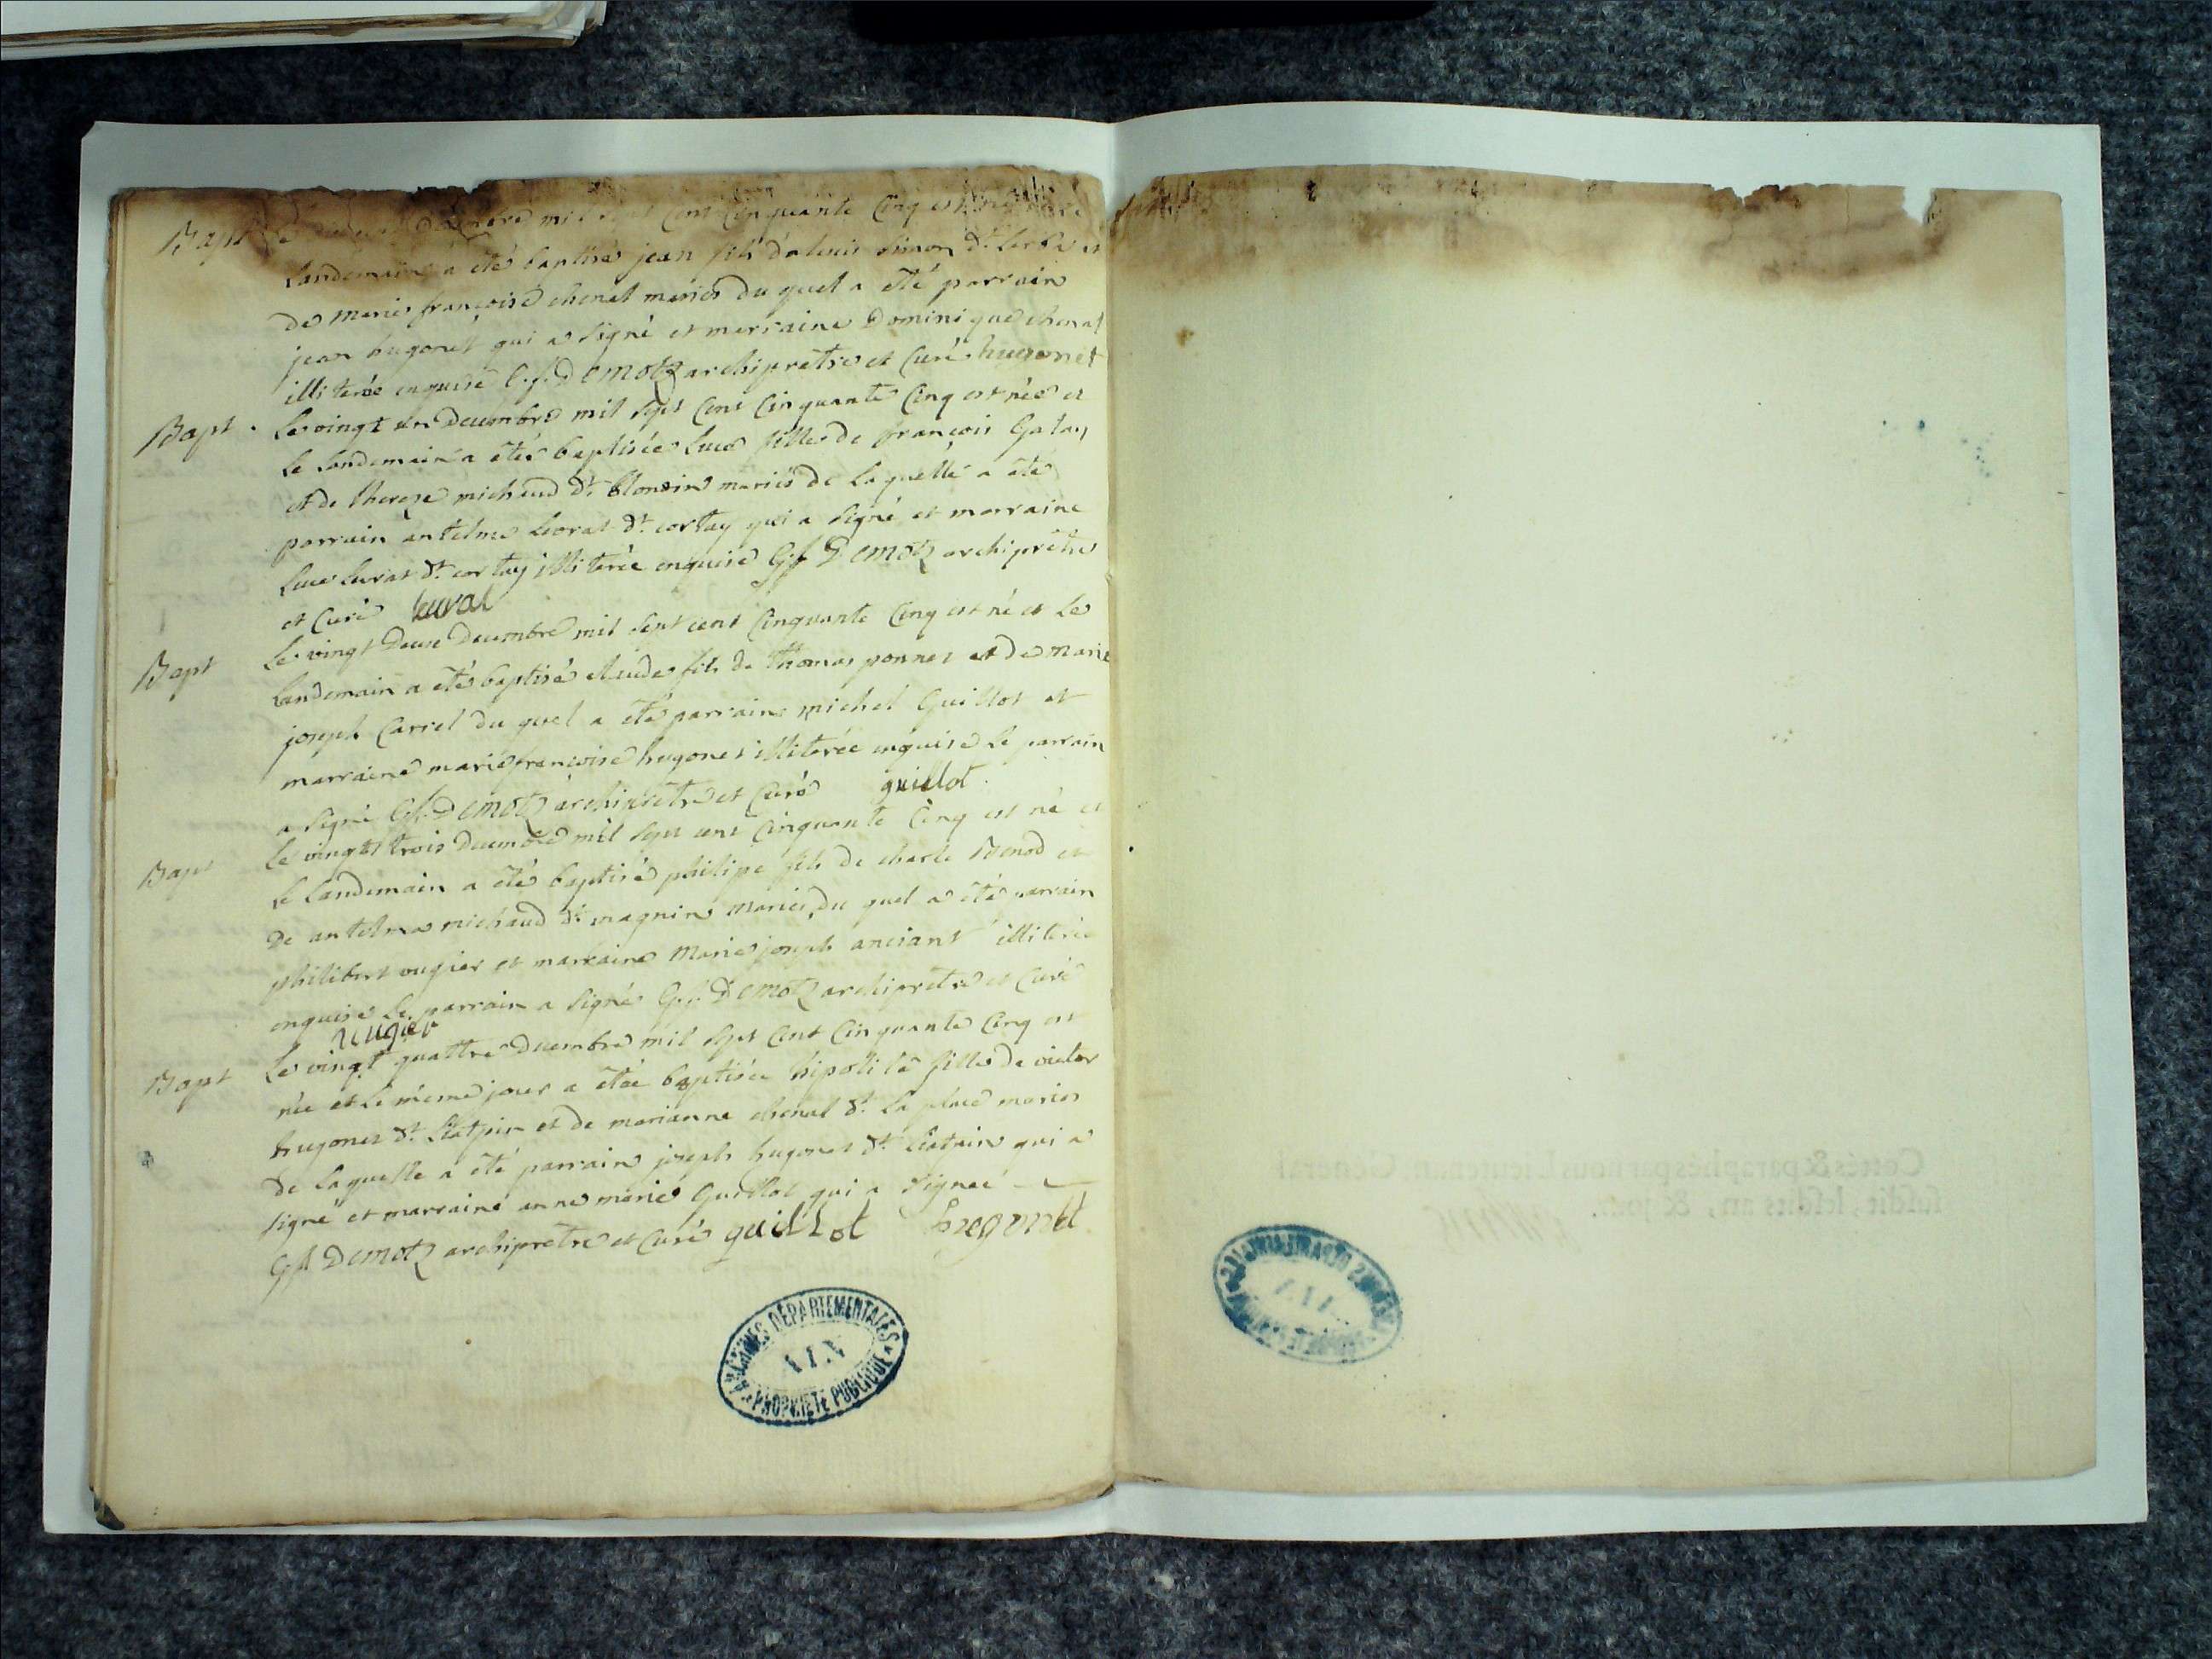 Bapt
mil sept cent cinquante cinq est né et le
landemain a été baptisé jean fils d'alexis simon dt
de marie françoise chenal mariés du quel a été parrain
jean hugonet qui a signé et marraine Dominique chenal
illiterée enquise G.f. Demotz archipretre et Curé hugonet
Bapt. Le vingt un Decembre mil sept cent cinquante cinq est née et
le landemain a étée baptisée luce fille de françois Galay
et de thereze michaud dt. blondin mariés de laquelle a été
parrain antelme leurat dt. cortay qui a signé et marraine
luce leurat dt. cortay illiterée enquise G.f. Demotz archipretre
et Curé leurat
Bapt Le vingt Deux Decembre mil sept cent cinquante cinq est né et le
landemain a été baptisé claude fils de thomas ponnet et de marie
joseph Carrel du quel a été parrain michel Guillot et
marraine marie françoise hugonet illiterée enquise le parrain
a signé G.f. Demotz archipretre et Curé guillot
Bapt Le vingt trois Decembre mil sept cent cinquante cinq est né et
le landemain a été baptisé philipe fils de charle Benod et
De antelma michaud dt. magnin mariés, du quel a été parrain
philibert vugier et marraine Marie joseph anciant illiterée
enquise le parrain a signé G.f. Demotz archipretre et Curé
vugier
Bapt Le vingt quattre Decembre mil sept cent cinquante cinq est
née et le même jour a étée baptisée hipolite fille de victor
hugonet dt. et de marianne chenal dt. la place mariés
de laquelle a été parrain joseph hugonet dt. qui a
signé et marraine anne marie Guillot qui a signeé
G.f. Demotz archipretre et Curé guillot hugonet
ARCHIVES DÉPARTEMENTALES
AIN
PROPRIÉTÉ PUBLIQUE
Cottés & paraphés par nous Lieutenan General
susdit, lesdits an, & jour.